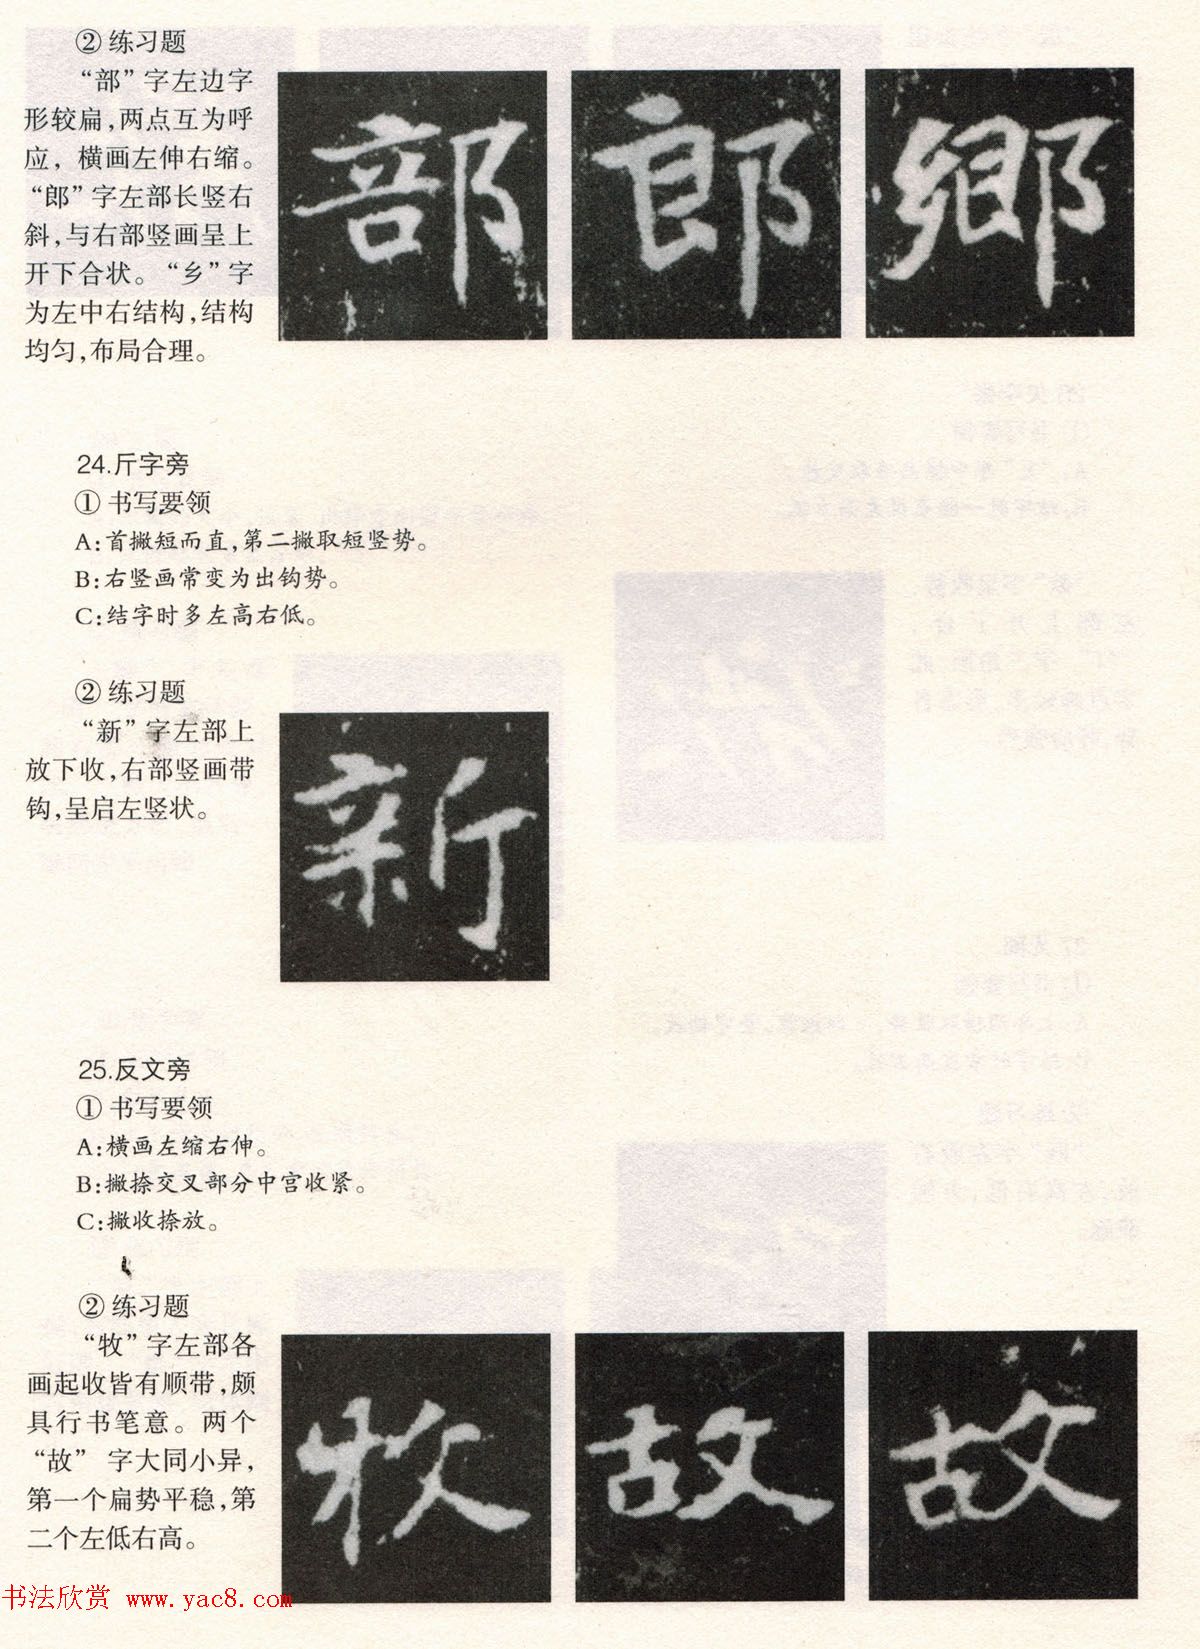 ② 练习题
“部”字左边字
形较扁,两点互为呼
应, 横画左伸右缩。
“郎”字左部长竖右
斜,与右部竖画呈上
开下合状。“乡”字
为左中右结构,结构
均匀,布局合理。
部 郎 鄉
24.斤字旁
① 书写要领
A:首撇短而直,第二撇取短竖势。
B:右竖画常变为出钩势。
C:结字时多左高右低。
② 练习题
“新”字左部上
放下收,右部竖画带
钩,呈启左竖状。
新
25.反文旁
① 书写要领
A:横画左缩右伸。
B:撇捺交叉部分中宫收紧。
C:撇收捺放。
② 练习题
“牧”字左部各
画起收皆有顺带,颇
具行书笔意。两个
“故” 字大同小异,
第一个扁势平稳,第
二个左低右高。
牧 故 故
书法欣赏 www.yac8.com